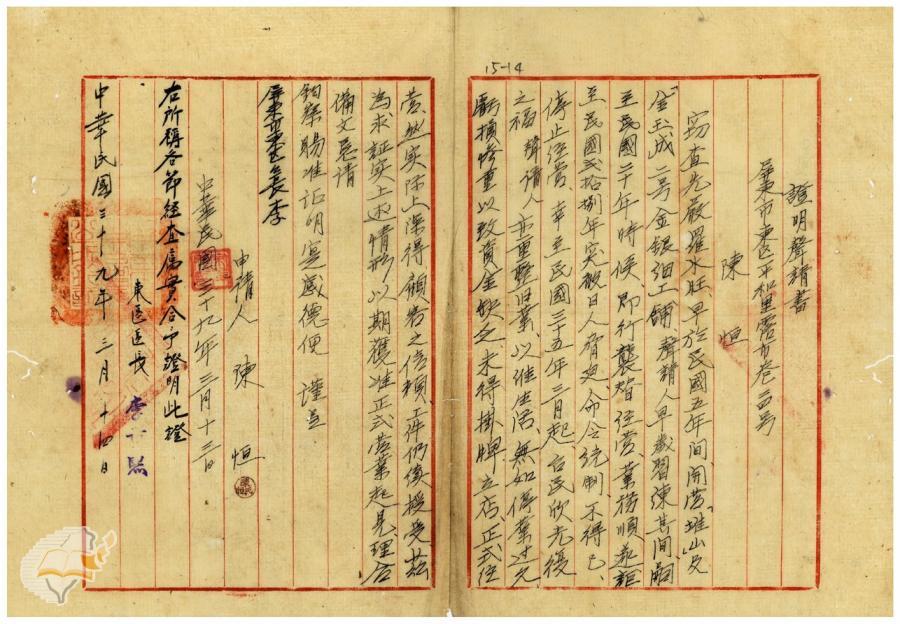 15-14
證明聲請書
屏東市東區平和里露市巷
陳 恒
竊查先嚴 水旺、早於民國五年間開營 山及
金玉成二号金銀細工舖、聲請人早歲習 其間、嗣
至民國二十年時候、即行襲 經營、業務順 詎
至民國弍拾捌年突被日人 命令統制、不得已、
停止經營、幸至民國三十五年三月起、台民欣光復
之福 聲請人 重整旧業、以維生活、無如停業 久
虧損 重以致資金缺乏未得掛牌立店正式經
營、然实际上深得顧客之信賴、工件仍 援受茲
為求証实上述情形以期獲准正式營業起見理合
備文懇請
鈞察賜准证明实感德便 謹呈
屏東市東區區長李
申請人 陳 恒
中華民國三十九年三月十三日
右所稱各節経查屬實合予證明此證
東區區長 李
中華民國三十九年三月十四日